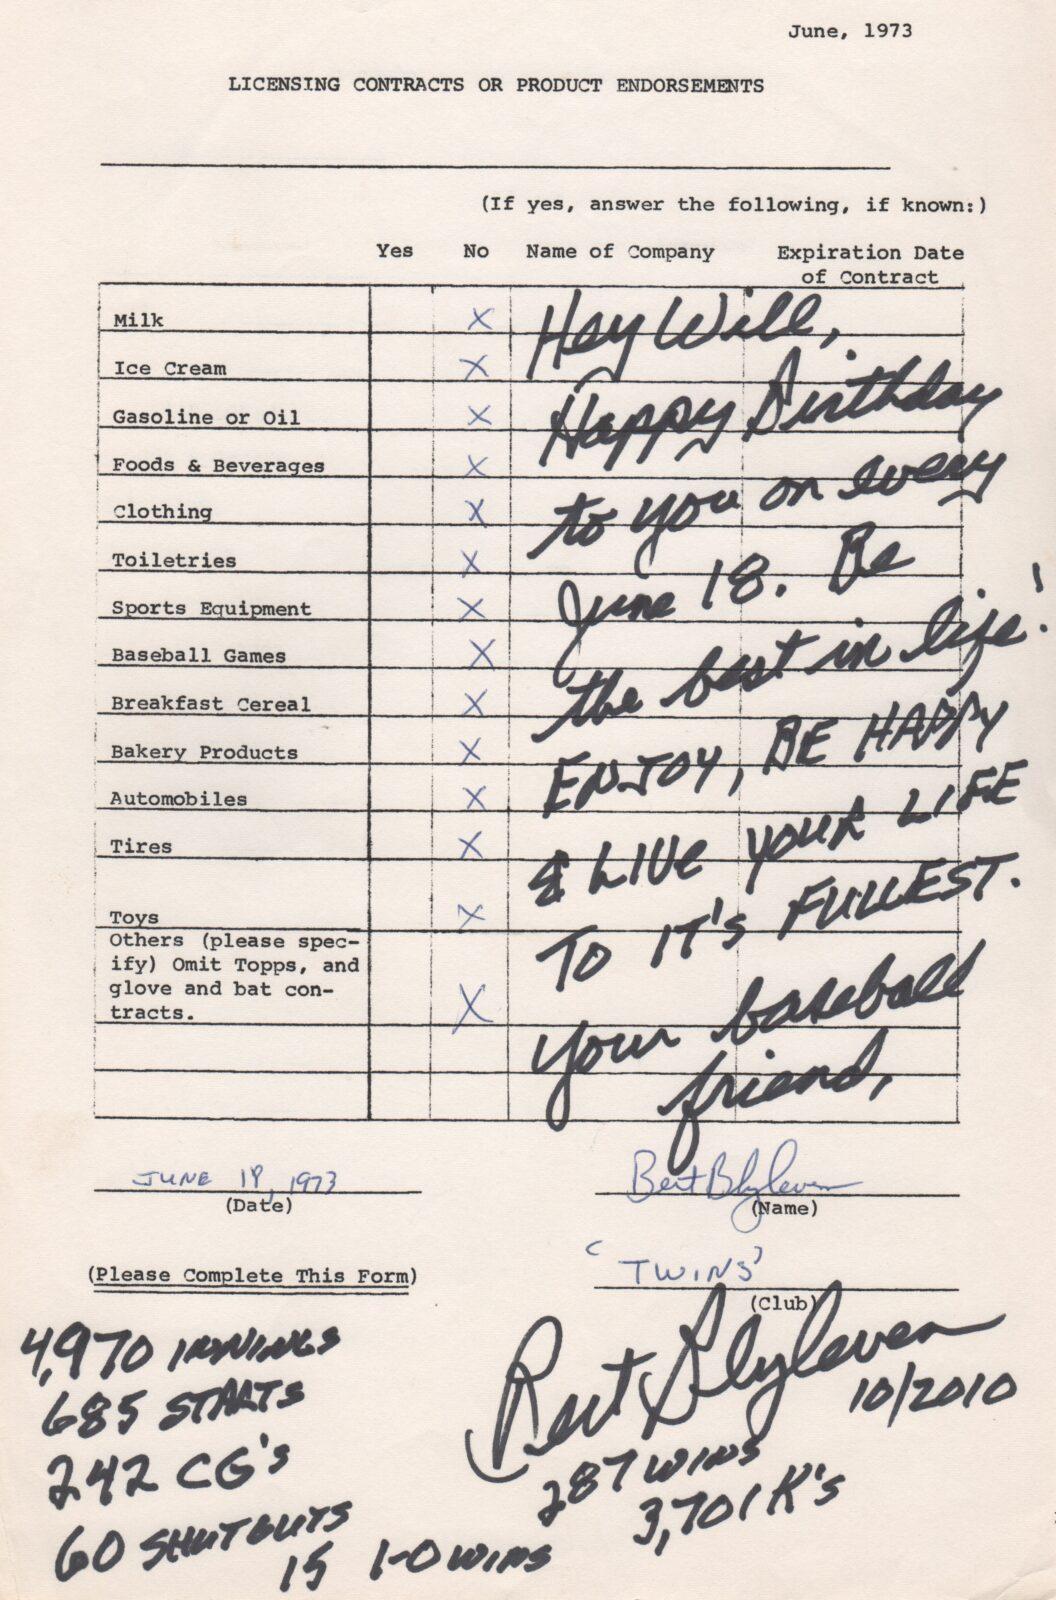 June, 1973
LICENSING CONTRACTS OR PRODUCT ENDORSEMENTS
(If yes, answer the following, if known:)
Yes No Name of Company Expiration Date
of Contract
Milk X
Ice Cream X
Gasoline or Oil X
Foods & Beverages X
Clothing X
Toiletries X
Sports Equipment X
Baseball Games X
Breakfast Cereal X
Bakery Products X
Automobiles X
Tires X
Toys X
Others (please spec-
ify) Omit Topps, and
glove and bat con-
tracts. X
Hey Will,
Happy Birthday
to you on every
June 18. Be
the best in life!
ENJOY, BE HAPPY
& LIVE YOUR LIFE
TO IT'S FULLEST.
Your baseball
friend,
JUNE 18, 1973
(Date)
Bert Blyleven
(Name)
"TWINS"
(Club)
(Please Complete This Form)
Bert Blyleven
10/2010
4,970 INNINGS
685 STARTS
242 CG'S
60 SHUTOUTS
15 1-0 WINS
287 WINS
3,701 K's